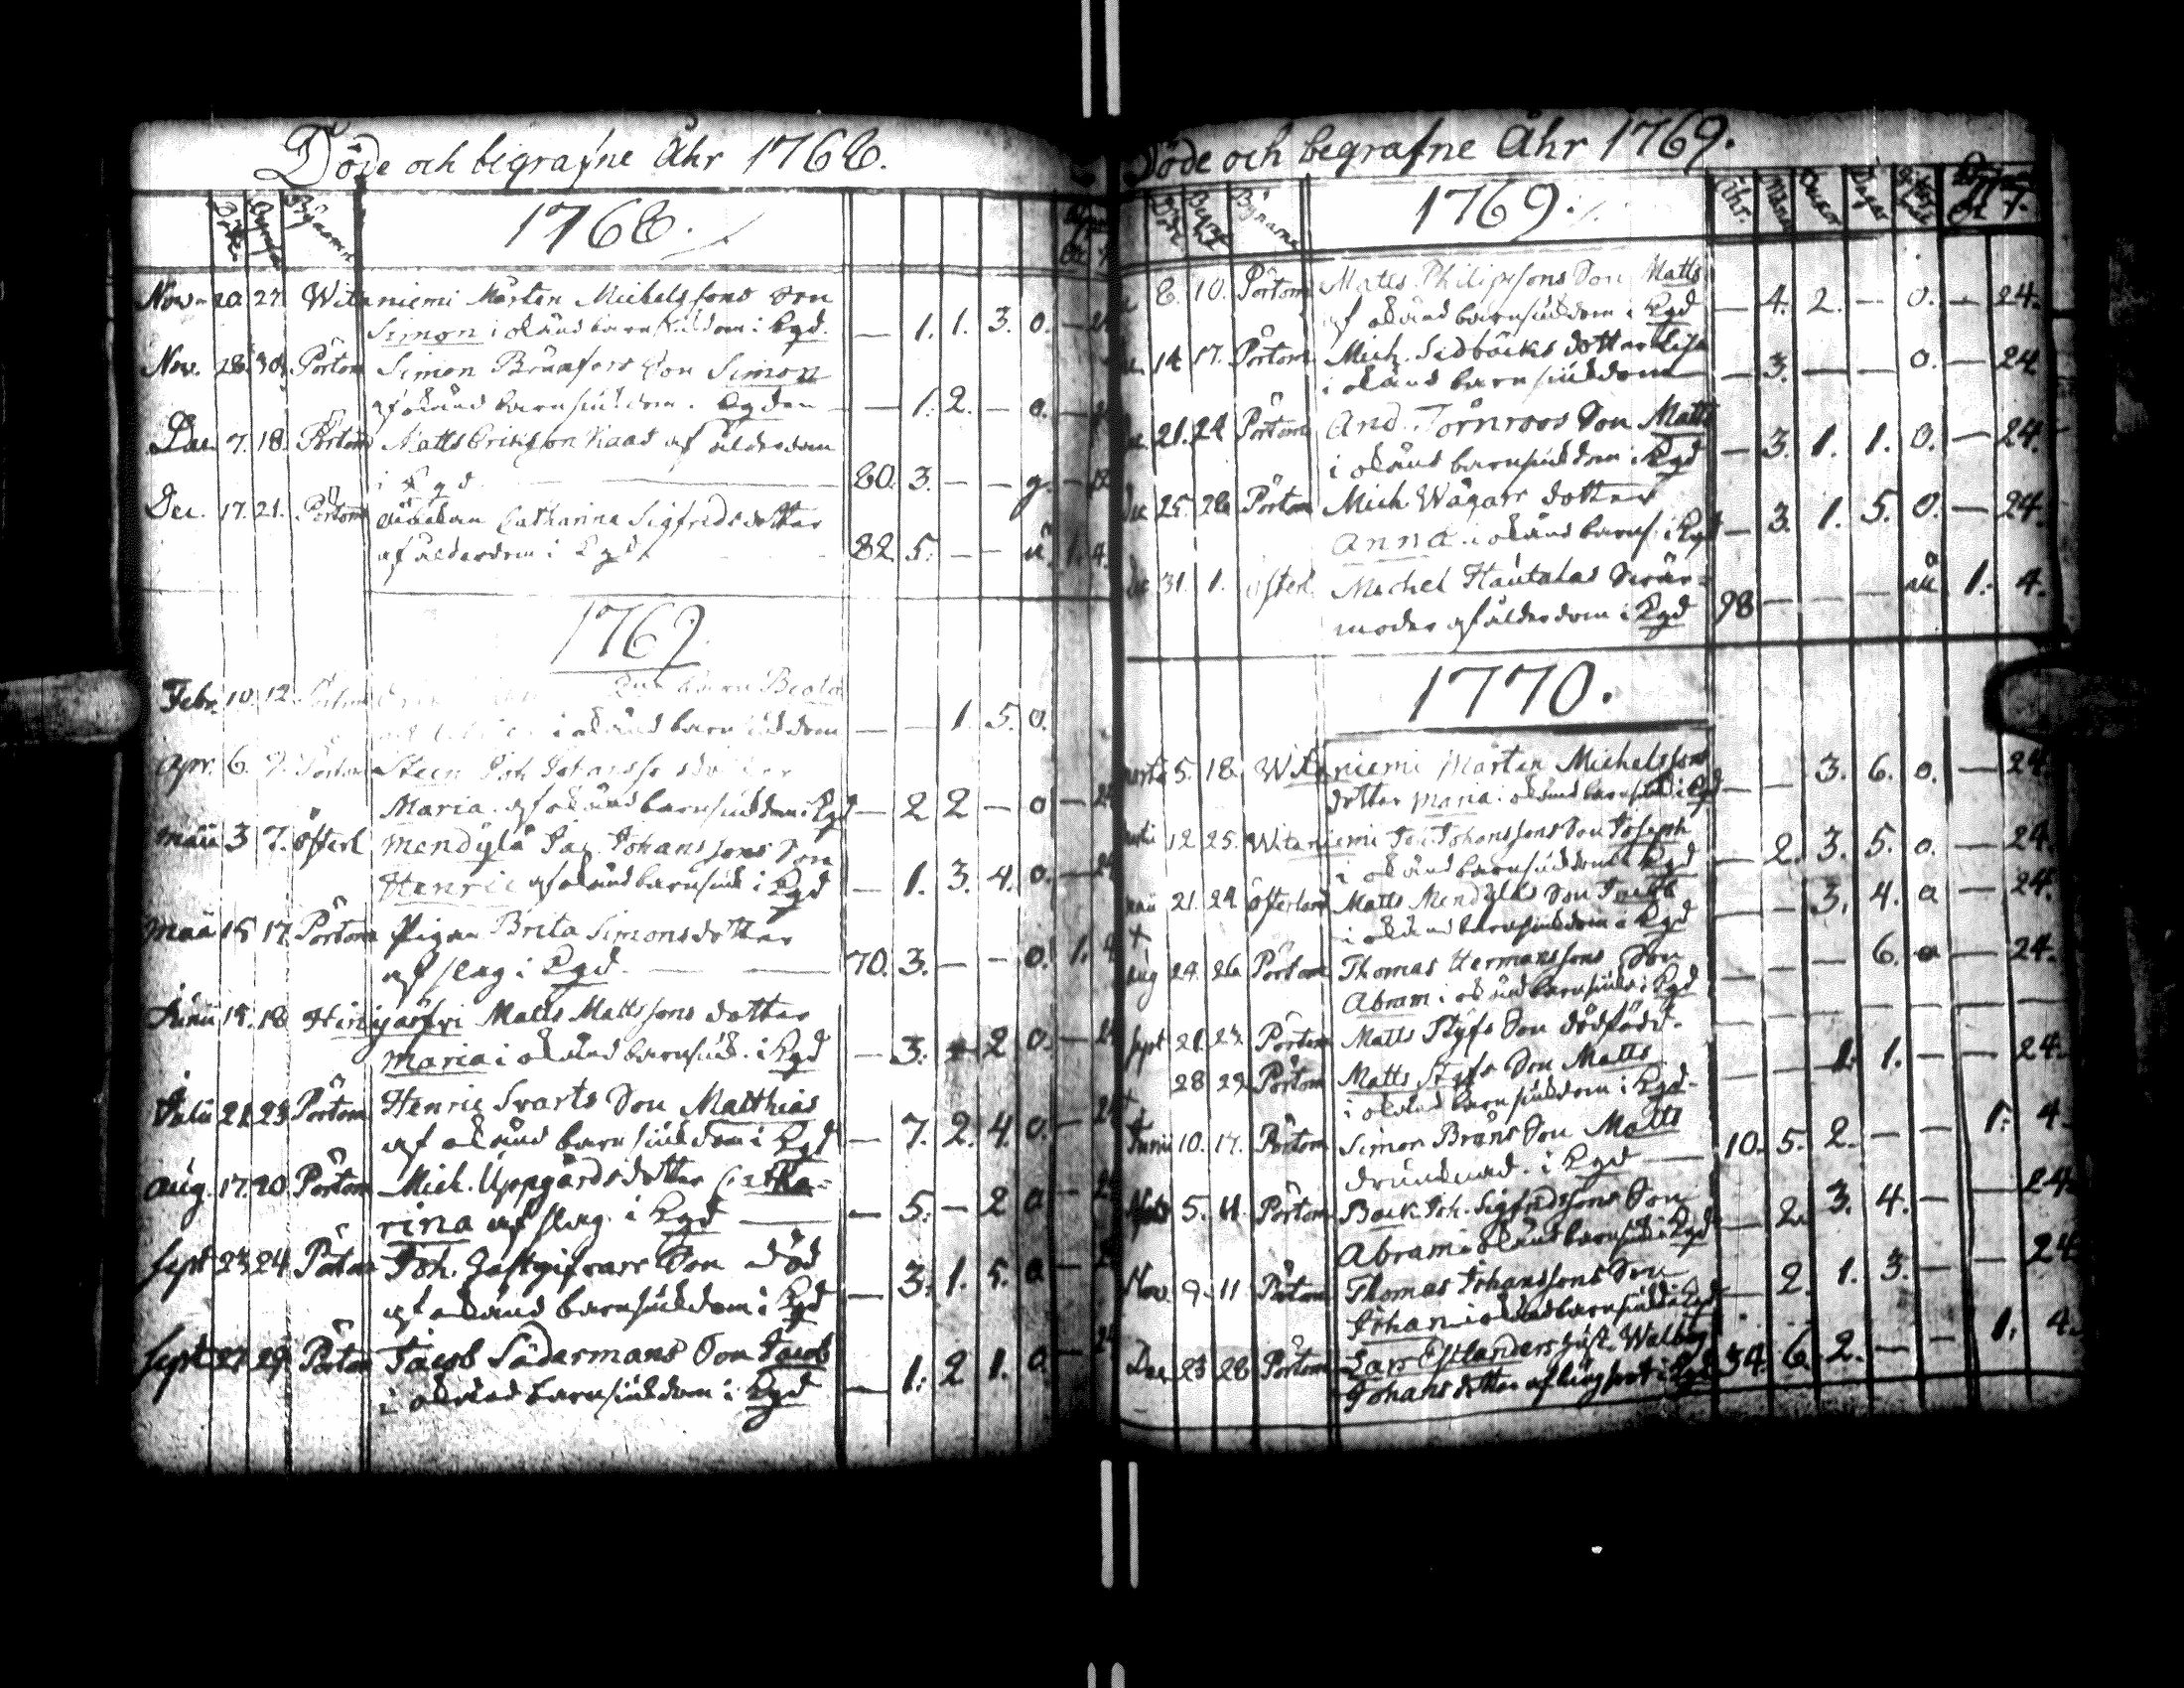 Döde och begrafne Åhr 1768.
Döde Begrafne Bÿnamn
1768.
Nov. 20. 27. Witaniemi Mårten Michelssons Son
Simon i okänd barnsiukdom i Kgd. — 1. 1. 3. o. — 24
Nov. 28. 30. Pörtom Simon Brunfors Son Simon
af okänd barnsiukdom. Kgden — — 1. 2. — o. —
Dec. 7. 18. Pörtom Matts Eriksson af ålderdom
i Kgd. — 80. 3. — — g. —
Dec. 17. 21. Pörtom Änkan Catharina Sigfridsdotter
af ålderdom i Kgd. 82. 5. — — u. 1. 4.
1769
Febr. 10. 12. Pörtom barn Beata
i okänd barnsiukdom — — 1. 5. o.
Apr. 6. 9. Pörtom Steen Joh Johanss dotter
Maria af okänd barnsiukdom i Kgd — 2 2 — o — 24
Maii 3 7. Österl Mendÿlä Jac. Johanssons Son
Henric af okänd barnsiuk i Kgd — 1. 3. 4. o. — 24
Maii 15 17. Pörtom Pigan Brita Simonsdotter
af slag i Kgd. — 70. 3. — — o. 1. 4
Junii 15. 18 Hinjärfvi Matts Mattssons dotter
Maria i okänd barnsiuk. i Kgd — 3. — 2 o. — 24
Julii 21. 23 Pörtom Henric Svarts Son Matthias
af okänd barnsiukdom i Kgd — 7. 2. 4. o. — 24
Aug. 17. 20 Pörtom Mich. Uppgårds dotter Catha-
rina af slag. i Kgd — — 5. — 2 o — 24
Sept 23. 24. Pörtom Joh. Gästgifvars Son död
af okänd barnsiukdom i Kgd — 3. 1. 5. o — 24
Sept 27. 29. Pörtom Jacob Södermans Son Jacob
i okänd barnsiukdom i Kgd — 1. 2 1. o. — 24
Döde och begrafne Åhr 1769.
Döde Begrf Bÿnamn 1769. Åhr. Mån. Veckor Dagar
8. 10. Pörtom Matts Philipssons Son Matts
af okänd barnsiukdom i Kgd — 4. 2. — o. — 24.
14 17. Pörtom Mich. Sidbäcks dotter Lisa
i okänd barnsiukdom — 3. — — o. — 24
21. 24 Pörtom And. Törnroos Son Matts
i okänd barnsiukdom i Kgd — 3. 1. 1. o. — 24.
Dec 25. 26 Pörtom Mich. Wägars dotter
Anna i okänd barns. i Kgd — 3. 1. 5. o. — 24.
Dec 31. 1. Österl. Michel Hautalas Svär-
moder af ålderdom i Kgd 98 — — — 1. 4.
1770.
5. 18. Witaniemi Mårten Michelssons
dotter Maria i okänd barnsiukd i Kgd — — 3. 6. o. — 24.
12 25. Witaniemi Joh. Johanssons Son Joseph
i okänd barnsiukdom i Kgd — 2. 3. 5. o. — 24.
Maii 21. 24 Österland Matts Mendÿläs Son Jacob
i okänd barnsiukdom i Kgd — — 3. 4. o — 24.
Aug 24. 26 Pörtom Thomas Hermanssons Son
Abram i okänd barnsiuk i Kgd — — — 6. o — 24.
Sept 21. 23. Pörtom Matts Stÿfs Son dödfödd.
28 29. Pörtom Matts Stÿfs Son Matts
i okänd barnsiukdom i Kgd. — — 1. 1. — — 24.
Junii 10. 17. Pörtom Simon Bräns Son Matts
drunknad. i Kgd — 10. 5. 2. — — 1. 4.
5. 11. Pörtom Back. Joh. Sigfridssons Son
Abram i okänd barnsiuk i Kgd — 2. 3. 4. — — 24.
Nov. 9. 11. Pörtom Thomas Johanssons Son
Johan i okänd barnsiukd i Kgd — 2. 1. 3. — — 24
Dec 23 28. Pörtom Lars Estlanders hust. Walborg
Johansdotter af lungsot i Kgd 54. 6. 2. — — 1. 4.